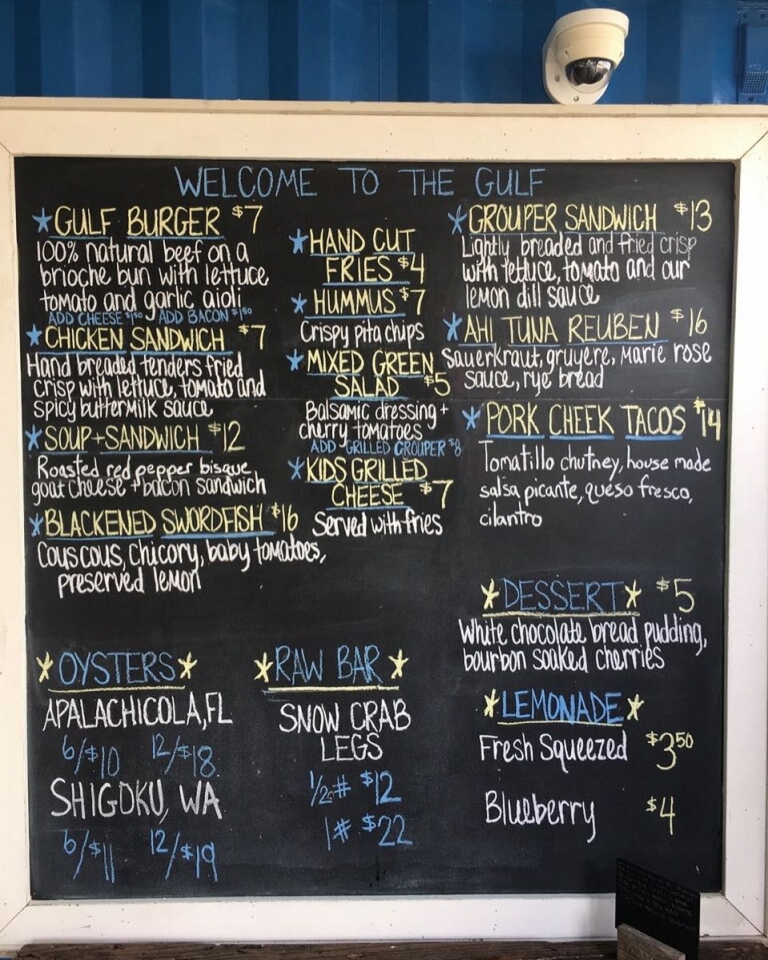 WELCOME TO THE GULF
GULF BURGER $7
100% natural beef on a
brioche bun with lettuce
tomato and garlic aioli
ADD CHEESE $1.50 ADD BACON $1.50
CHICKEN SANDWICH $7
Hand breaded tenders fried
crisp with lettuce, tomato and
spicy buttermilk sauce
SOUP+SANDWICH $12
Roasted red pepper bisque
goat cheese + bacon sandwich
BLACKENED SWORDFISH $16
Couscous, chicory, baby tomatoes,
preserved lemon
HAND CUT
FRIES $4
HUMMUS $7
Crispy pita chips
MIXED GREEN
SALAD $5
Balsamic dressing +
cherry tomatoes
ADD GRILLED GROUPER $8
KIDS GRILLED
CHEESE $7
Served with fries
GROUPER SANDWICH $13
Lightly breaded and fried crisp
with lettuce, tomato and our
lemon dill sauce
AHI TUNA REUBEN $16
Sauerkraut, gruyere, Marie rose
sauce, rye bread
PORK CHEEK TACOS $14
Tomatillo chutney, house made
salsa picante, queso fresco,
cilantro
DESSERT $5
White chocolate bread pudding,
bourbon soaked cherries
OYSTERS
APALACHICOLA, FL
6/$10 12/$18
SHIGOKU, WA
6/$11 12/$19
RAW BAR
SNOW CRAB
LEGS
1/2# $12
1# $22
LEMONADE
Fresh Squeezed $3.50
Blueberry $4